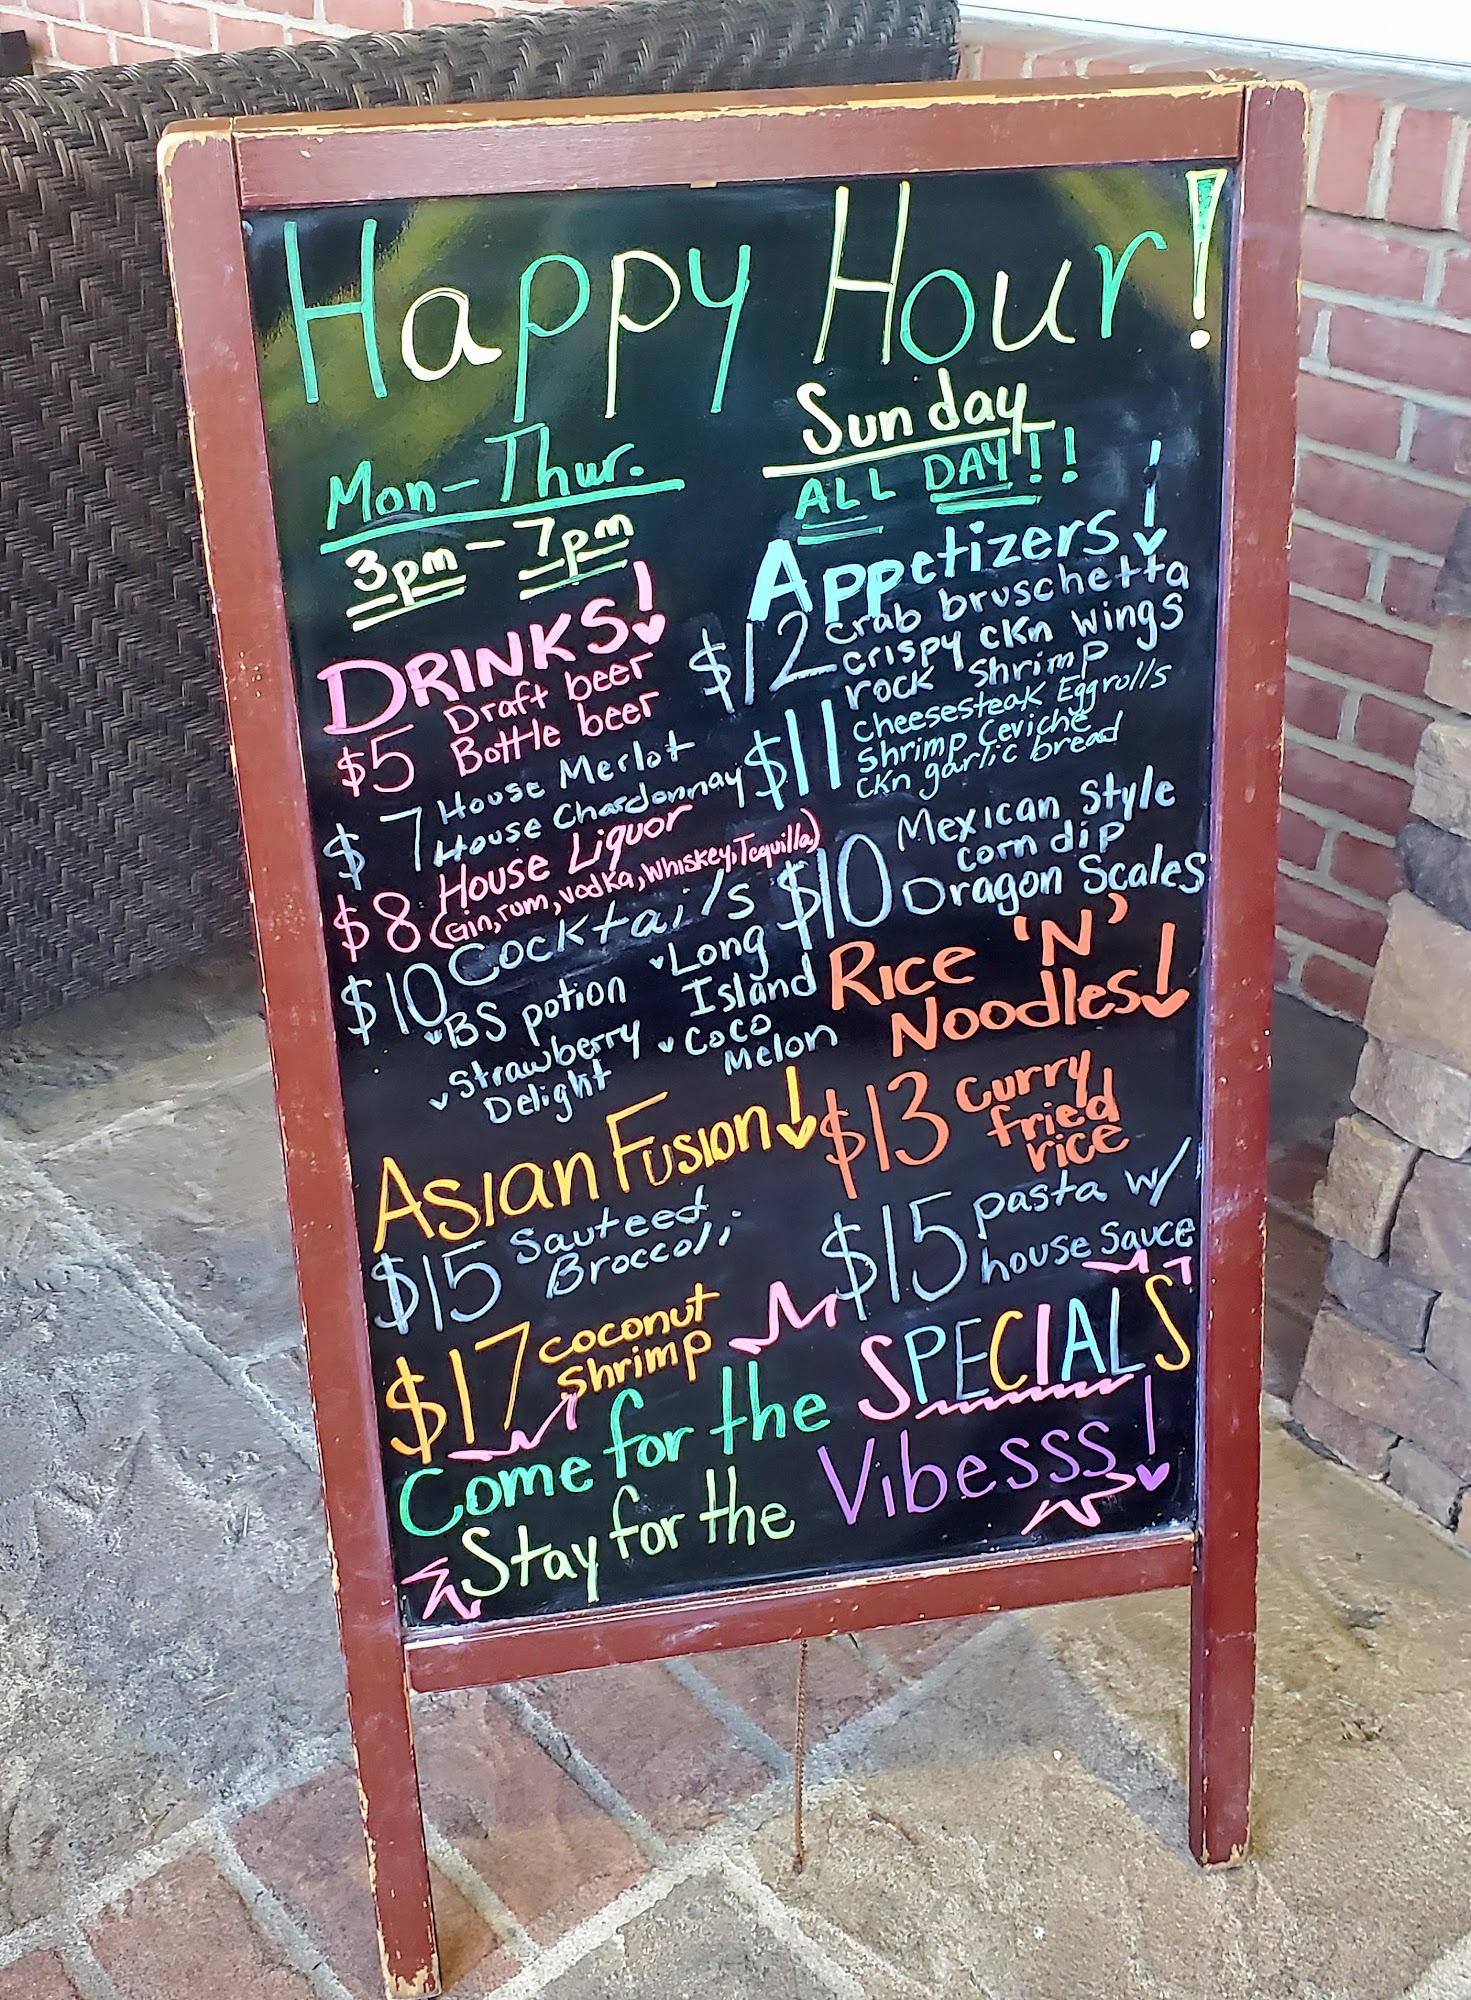 Happy Hour!
Mon-Thur.
3pm - 7pm
Sunday
ALL DAY!!
DRINKS!
$5 Draft beer
Bottle beer
$7 House Merlot
House Chardonnay
$8 House Liquor
(Gin, rum, vodka, Whiskey, Tequilla)
$10 Cocktails
BS potion
Strawberry
Delight
Long
Island
Coco
Melon
Asian Fusion!
$15 Sauteed
Broccoli
$17 coconut
shrimp
Appetizers!
$12 crab bruschetta
crispy ckn wings
rock shrimp
$11 Cheesesteak Eggrolls
Shrimp Ceviche
ckn garlic bread
$10 Mexican Style
corn dip
Dragon Scales
Rice 'N'
Noodles!
$13 Curry
fried
rice
$15 pasta w/
house sauce
Come for the SPECIALS
Stay for the Vibesss!